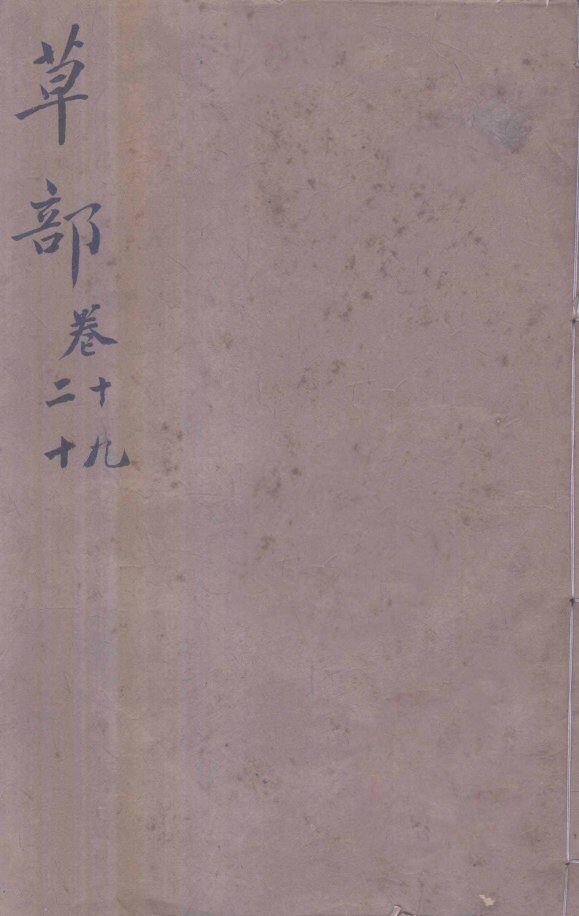 草部
卷
十九
二十